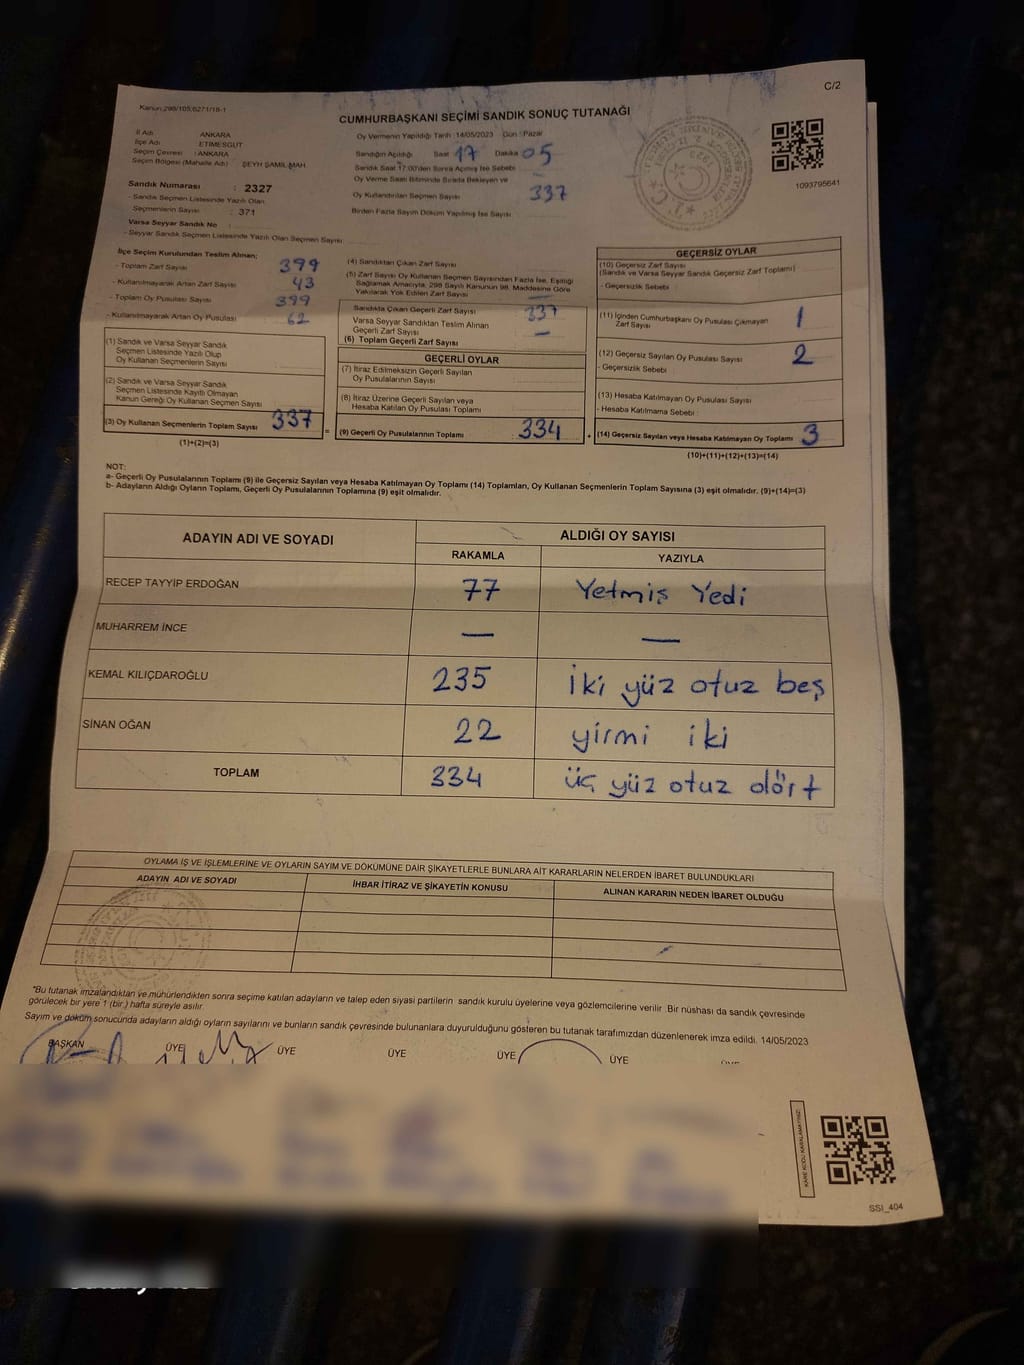 C/2
Kanun;298/105;6271/18-1
CUMHURBAŞKANI SEÇİMİ SANDIK SONUÇ TUTANAĞI
İl Adı ANKARA
İlçe Adı ETİMESGUT
Seçim Çevresi : ANKARA
Seçim Bölgesi (Mahalle Adı) : ŞEYH ŞAMİL MAH.
Sandık Numarası : 2327
- Sandık Seçmen Listesinde Yazılı Olan
Seçmenlerin Sayısı : 371
Varsa Seyyar Sandık No :
- Seyyar Sandık Seçmen Listesinde Yazılı Olan Seçmen Sayısı
Oy Vermenin Yapıldığı Tarih : 14/05/2023 Gün : Pazar
Sandığın Açıldığı Saat 17 Dakika 05
Sandık Saat 17:00'den Sonra Açılmış İse Sebebi
Oy Verme Saati Bitiminde Sırada Bekleyen ve
Oy Kullandırılan Seçmen Sayısı 337
Birden Fazla Sayım Döküm Yapılmış İse Sayısı
1093795641
İlçe Seçim Kurulundan Teslim Alınan;
- Toplam Zarf Sayısı 399
- Kullanılmayarak Artan Zarf Sayısı 43
- Toplam Oy Pusulası Sayısı 399
- Kullanılmayarak Artan Oy Pusulası 62
(1) Sandık ve Varsa Seyyar Sandık
Seçmen Listesinde Yazılı Olup
Oy Kullanan Seçmenlerin Sayısı
(2) Sandık ve Varsa Seyyar Sandık
Seçmen Listesinde Kayıtlı Olmayan
Kanun Gereği Oy Kullanan Seçmen Sayısı
(3) Oy Kullanan Seçmenlerin Toplam Sayısı 337
(1)+(2)=(3)
(4) Sandıktan Çıkan Zarf Sayısı
(5) Zarf Sayısı Oy Kullanan Seçmen Sayısından Fazla İse, Eşitliği
Sağlamak Amacıyla, 298 Sayılı Kanunun 98. Maddesine Göre
Yakılarak Yok Edilen Zarf Sayısı —
Sandıkta Çıkan Geçerli Zarf Sayısı 337
Varsa Seyyar Sandıktan Teslim Alınan
Geçerli Zarf Sayısı —
(6) Toplam Geçerli Zarf Sayısı
GEÇERLİ OYLAR
(7) İtiraz Edilmeksizin Geçerli Sayılan
Oy Pusulalarının Sayısı
(8) İtiraz Üzerine Geçerli Sayılan veya
Hesaba Katılan Oy Pusulası Toplamı
= (9) Geçerli Oy Pusulalarının Toplamı 334
GEÇERSİZ OYLAR
(10) Geçersiz Zarf Sayısı
(Sandık ve Varsa Seyyar Sandık Geçersiz Zarf Toplamı)
- Geçersizlik Sebebi
(11) İçinden Cumhurbaşkanı Oy Pusulası Çıkmayan
Zarf Sayısı 1
(12) Geçersiz Sayılan Oy Pusulası Sayısı 2
- Geçersizlik Sebebi
(13) Hesaba Katılmayan Oy Pusulası Sayısı
- Hesaba Katılmama Sebebi :
+ (14) Geçersiz Sayılan veya Hesaba Katılmayan Oy Toplamı 3
(10)+(11)+(12)+(13)=(14)
NOT:
a- Geçerli Oy Pusulalarının Toplamı (9) ile Geçersiz Sayılan veya Hesaba Katılmayan Oy Toplamı (14) Toplamları, Oy Kullanan Seçmenlerin Toplam Sayısına (3) eşit olmalıdır. (9)+(14)=(3)
b- Adayların Aldığı Oyların Toplamı, Geçerli Oy Pusulalarının Toplamına (9) eşit olmalıdır.
ADAYIN ADI VE SOYADI ALDIĞI OY SAYISI
RAKAMLA YAZIYLA
RECEP TAYYİP ERDOĞAN 77 Yetmiş Yedi
MUHARREM İNCE — —
KEMAL KILIÇDAROĞLU 235 İki yüz otuz beş
SİNAN OĞAN 22 yirmi iki
TOPLAM 334 üç yüz otuz dört
OYLAMA İŞ VE İŞLEMLERİNE VE OYLARIN SAYIM VE DÖKÜMÜNE DAİR ŞİKAYETLERLE BUNLARA AİT KARARLARIN NELERDEN İBARET BULUNDUKLARI
ADAYIN ADI VE SOYADI İHBAR İTİRAZ VE ŞİKAYETİN KONUSU ALINAN KARARIN NEDEN İBARET OLDUĞU
*Bu tutanak imzalandıktan ve mühürlendikten sonra seçime katılan adayların ve talep eden siyasi partilerin sandık kurulu üyelerine veya gözlemcilerine verilir. Bir nüshası da sandık çevresinde
görülecek bir yere 1 (bir) hafta süreyle asılır.
Sayım ve döküm sonucunda adayların aldığı oyların sayılarını ve bunların sandık çevresinde bulunanlara duyurulduğunu gösteren bu tutanak tarafımızdan düzenlenerek imza edildi. 14/05/2023
BAŞKAN ÜYE ÜYE ÜYE ÜYE ÜYE
KARE KODU KARALAMAYINIZ
SSI_404